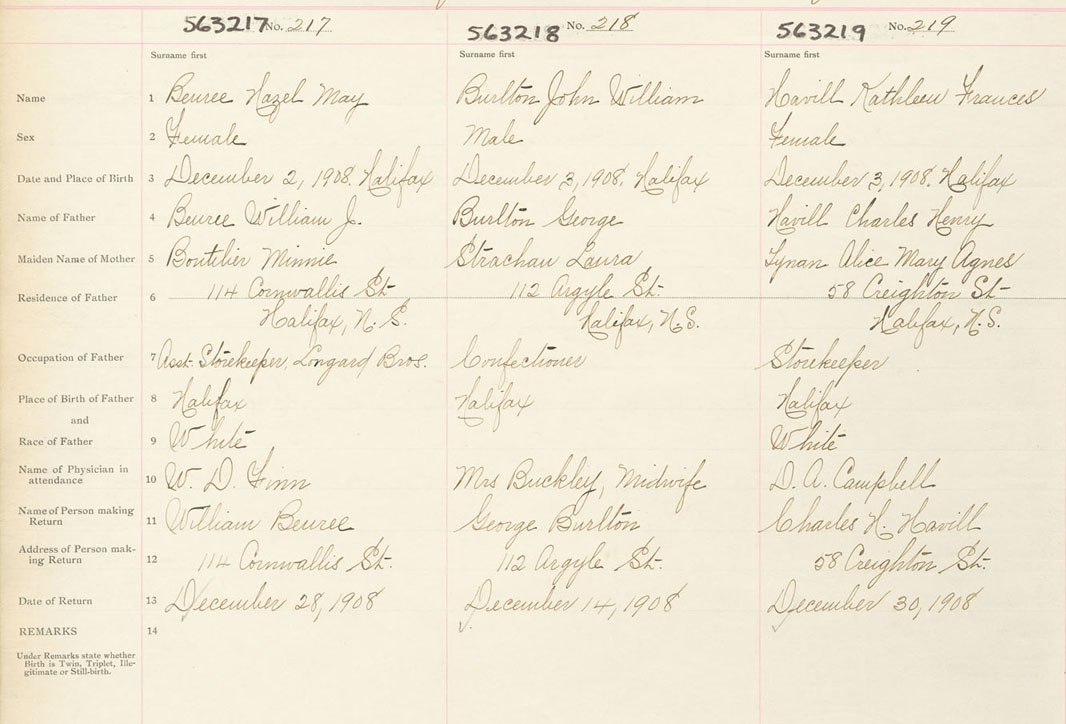 563217 No. 217 563218 No. 218 563219 No. 219
Surname first Surname first Surname first
Name 1 Beuree Hazel May Burlton John William Havill Kathleen Frances
Sex 2 Female Male Female
Date and Place of Birth 3 December 2, 1908. Halifax December 3, 1908. Halifax December 3, 1908. Halifax
Name of Father 4 Beuree William J. Burlton George Havill Charles Henry
Maiden Name of Mother 5 Boutilier Minnie Strachan Laura Lynan Alice Mary Agnes
Residence of Father 6 114 Cornwallis St. 112 Argyle St. 58 Creighton St
Halifax, N.S. Halifax, N.S. Halifax, N.S.
Occupation of Father 7 Asst. Storekeeper, Longard Bros. Confectioner Storekeeper
Place of Birth of Father 8 Halifax Halifax Halifax
and
Race of Father 9 White White
Name of Physician in
attendance 10 W. D. Finn Mrs Buckley, Midwife D. A. Campbell
Name of Person making
Return 11 William Beuree George Burlton Charles H. Havill
Address of Person mak-
ing Return 12 114 Cornwallis St. 112 Argyle St. 58 Creighton St.
Date of Return 13 December 28, 1908 December 14, 1908 December 30, 1908
REMARKS 14
Under Remarks state whether
Birth is Twin, Triplet, Ille-
gitimate or Still-birth.